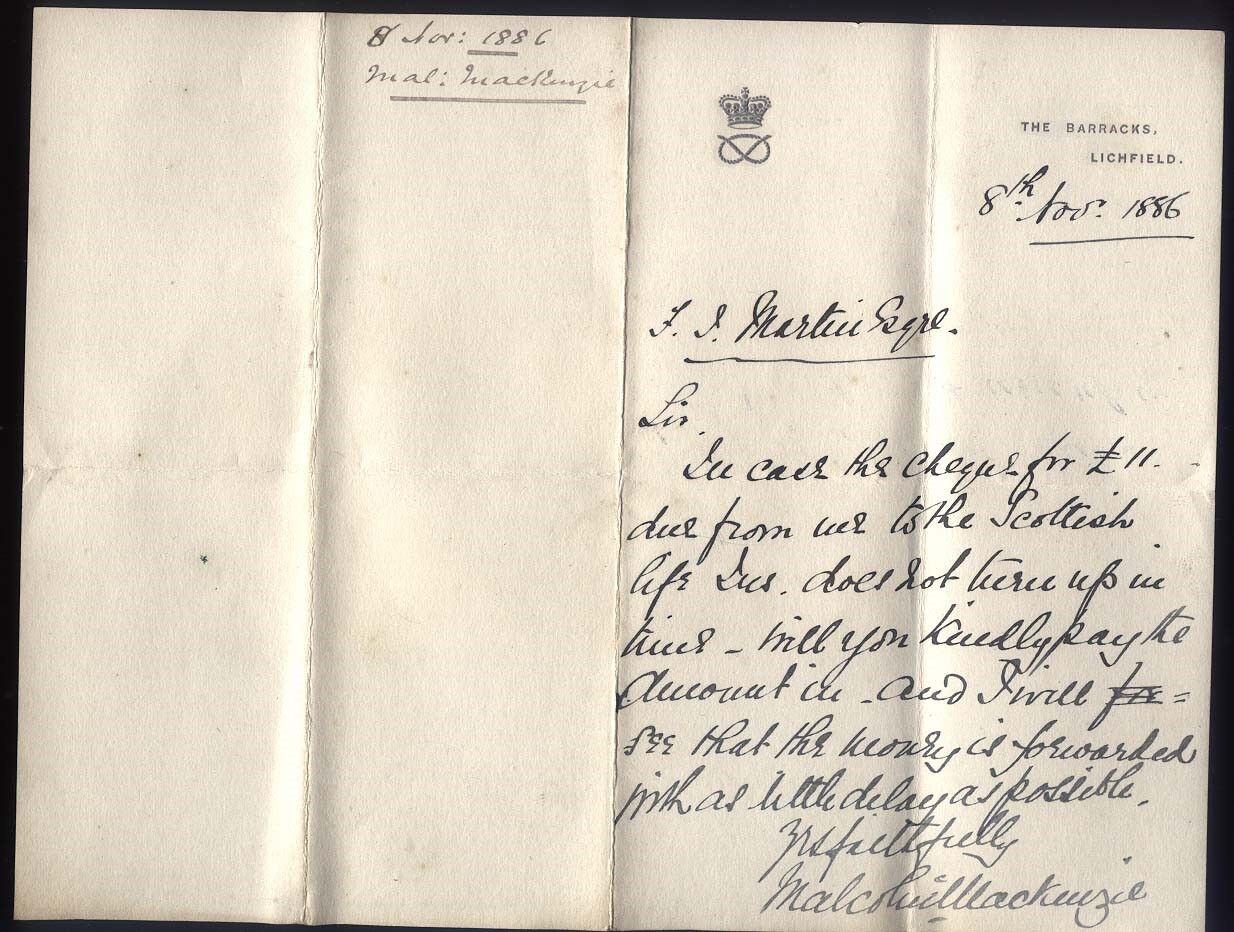 8 Nov: 1886
Mal: Mackenzie
THE BARRACKS,
LICHFIELD.
8th Nov: 1886
F. I. Martin Esqre.
Sir,
In case the cheque for £11. -
due from me to the Scottish
life Ins. does not turn up in
time - will you kindly pay the
amount in - and I will for =
see that the money is forwarded
with as little delay as possible.
Yrs faithfully
Malcolm Mackenzie